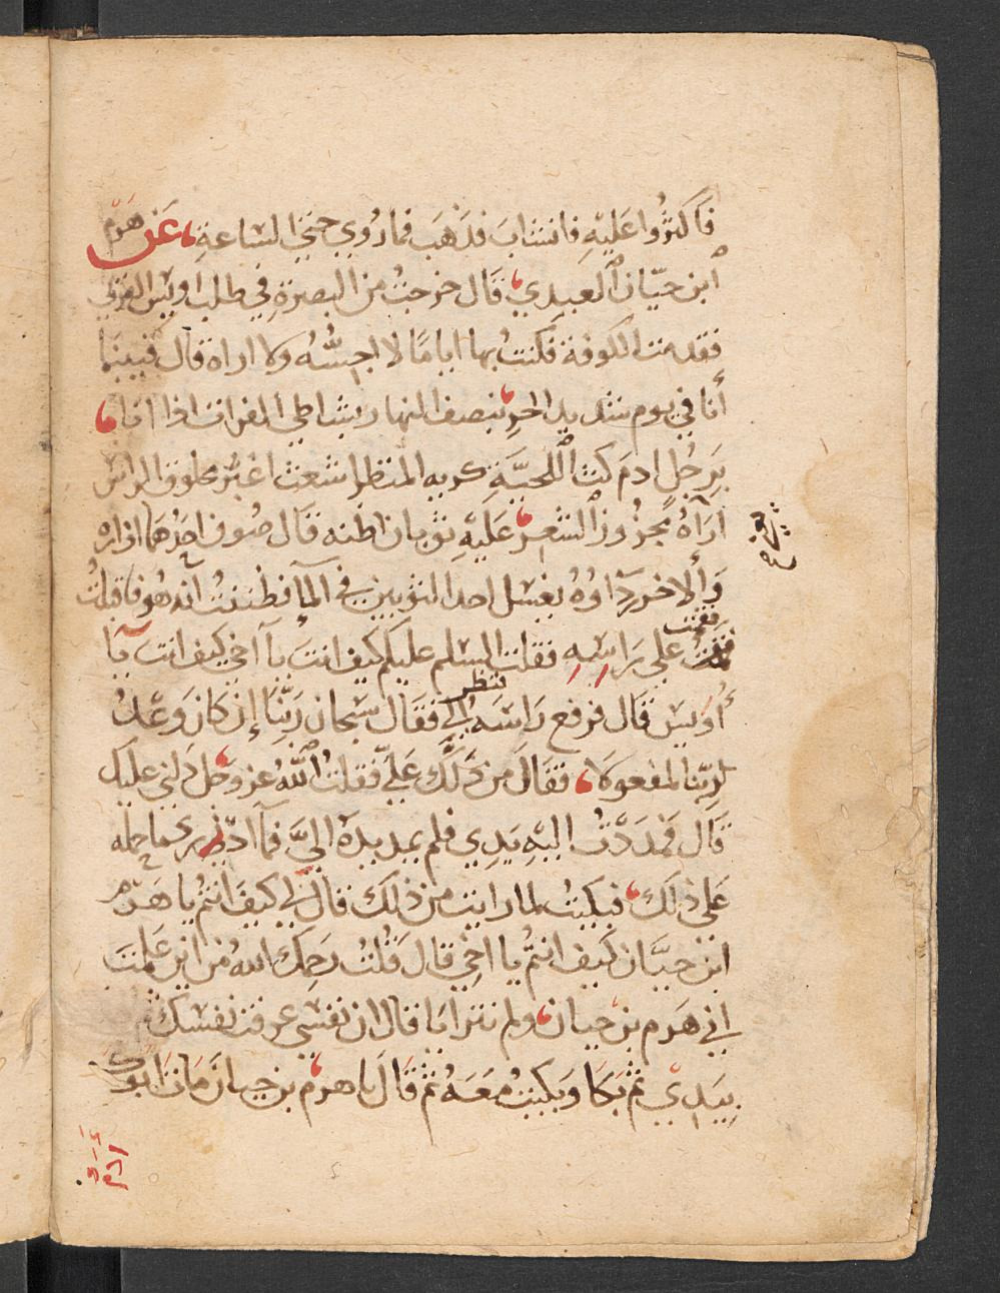 فاكثروا عليه فانساب فذهب فما روي حتى الساعة، عن هرم
ابن حيان العبدي، قال خرجت من البصرة في طلب اويس القرني
فقدمت الكوفة فكنت بها اياما لا احسه ولا اراه قال فبينما
أنا في يوم شديد الحر، بنصف النهار بشاطي الفرات اذا انا،
برجل ادم كث اللحية كريه المنظر اشعث اغبر محلوق الراس
اراه مجزوز الشعر، عليه ثوبان اظنه قال صوف احدهما ازاره
والاخر رداوه يغسل احد الثوبين في المآ فظننت انه هو فاقبلت
فقمت
على راسه فقلت السلم عليكم كيف انت يآ اخي كيف انت يآ
أويس قال فرفع راسه ينظر الي فقال سبحان ربنا إن كان وعد
ربنا لمفعولا، فقال من دلك علي فقلت الله عز وجل دلني عليك
قال فمددت اليه يدي فلم يمد يده الي فمآ ادري
على ذلك، فبكيت لما رايت من ذلك قال لي كيف انتم يا هرم
ابن حيان كيف انتم يا اخي قال قلت رحمك الله من اين علمت
اني هرم بن حيان، ولم تراني فقال ان نفسي عرفت نفسك ثم
بيدي ثم بكا وبكيت معه ثم قال يا هرم، بن حيان مات ابوك